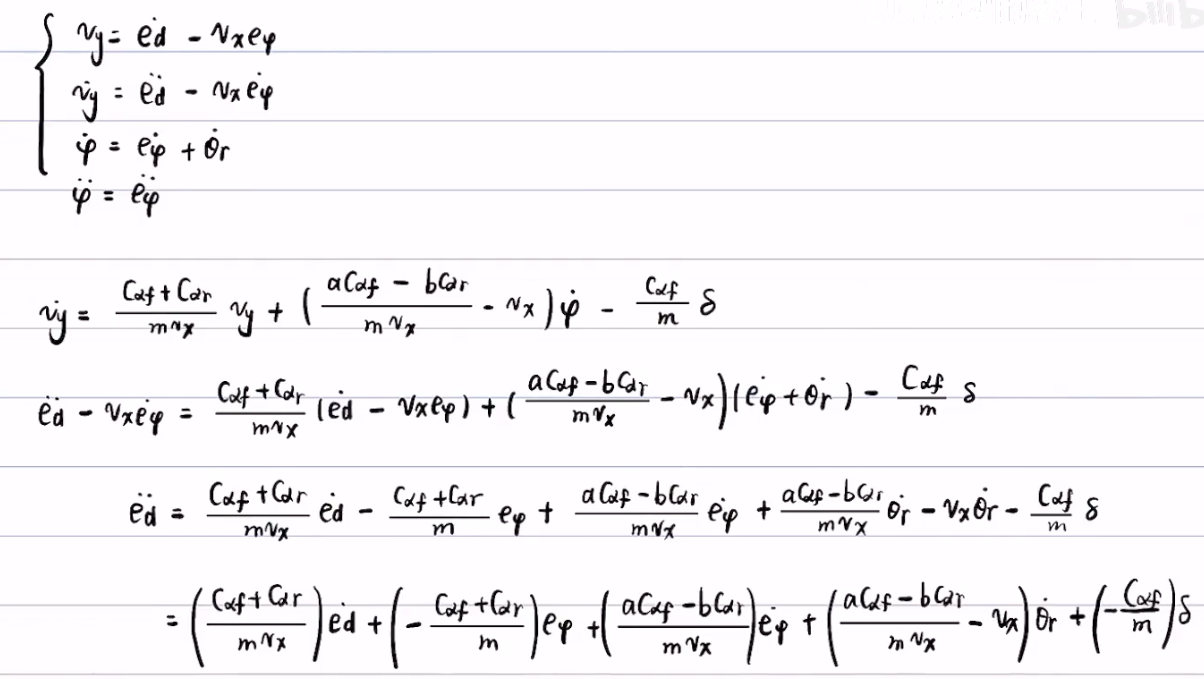 v_y = ė_d - v_x e_φ
v̇_y = ë_d - v_x ė_φ
φ̇ = ė_φ + θ̇_r
φ̈ = ë_φ
v̇_y = \frac{C_{αf} + C_{αr}}{m v_x} v_y + ( \frac{a C_{αf} - b C_{αr}}{m v_x} - v_x ) φ̇ - \frac{C_{αf}}{m} δ
ë_d - v_x ė_φ = \frac{C_{αf} + C_{αr}}{m v_x} ( ė_d - v_x e_φ ) + ( \frac{a C_{αf} - b C_{αr}}{m v_x} - v_x ) ( ė_φ + θ̇_r ) - \frac{C_{αf}}{m} δ
ë_d = \frac{C_{αf} + C_{αr}}{m v_x} ė_d - \frac{C_{αf} + C_{αr}}{m} e_φ + \frac{a C_{αf} - b C_{αr}}{m v_x} ė_φ + \frac{a C_{αf} - b C_{αr}}{m v_x} θ̇_r - v_x θ̇_r - \frac{C_{αf}}{m} δ
= ( \frac{C_{αf} + C_{αr}}{m v_x} ) ė_d + ( - \frac{C_{αf} + C_{αr}}{m} ) e_φ + ( \frac{a C_{αf} - b C_{αr}}{m v_x} ) ė_φ + ( \frac{a C_{αf} - b C_{αr}}{m v_x} - v_x ) θ̇_r + ( - \frac{C_{αf}}{m} ) δ